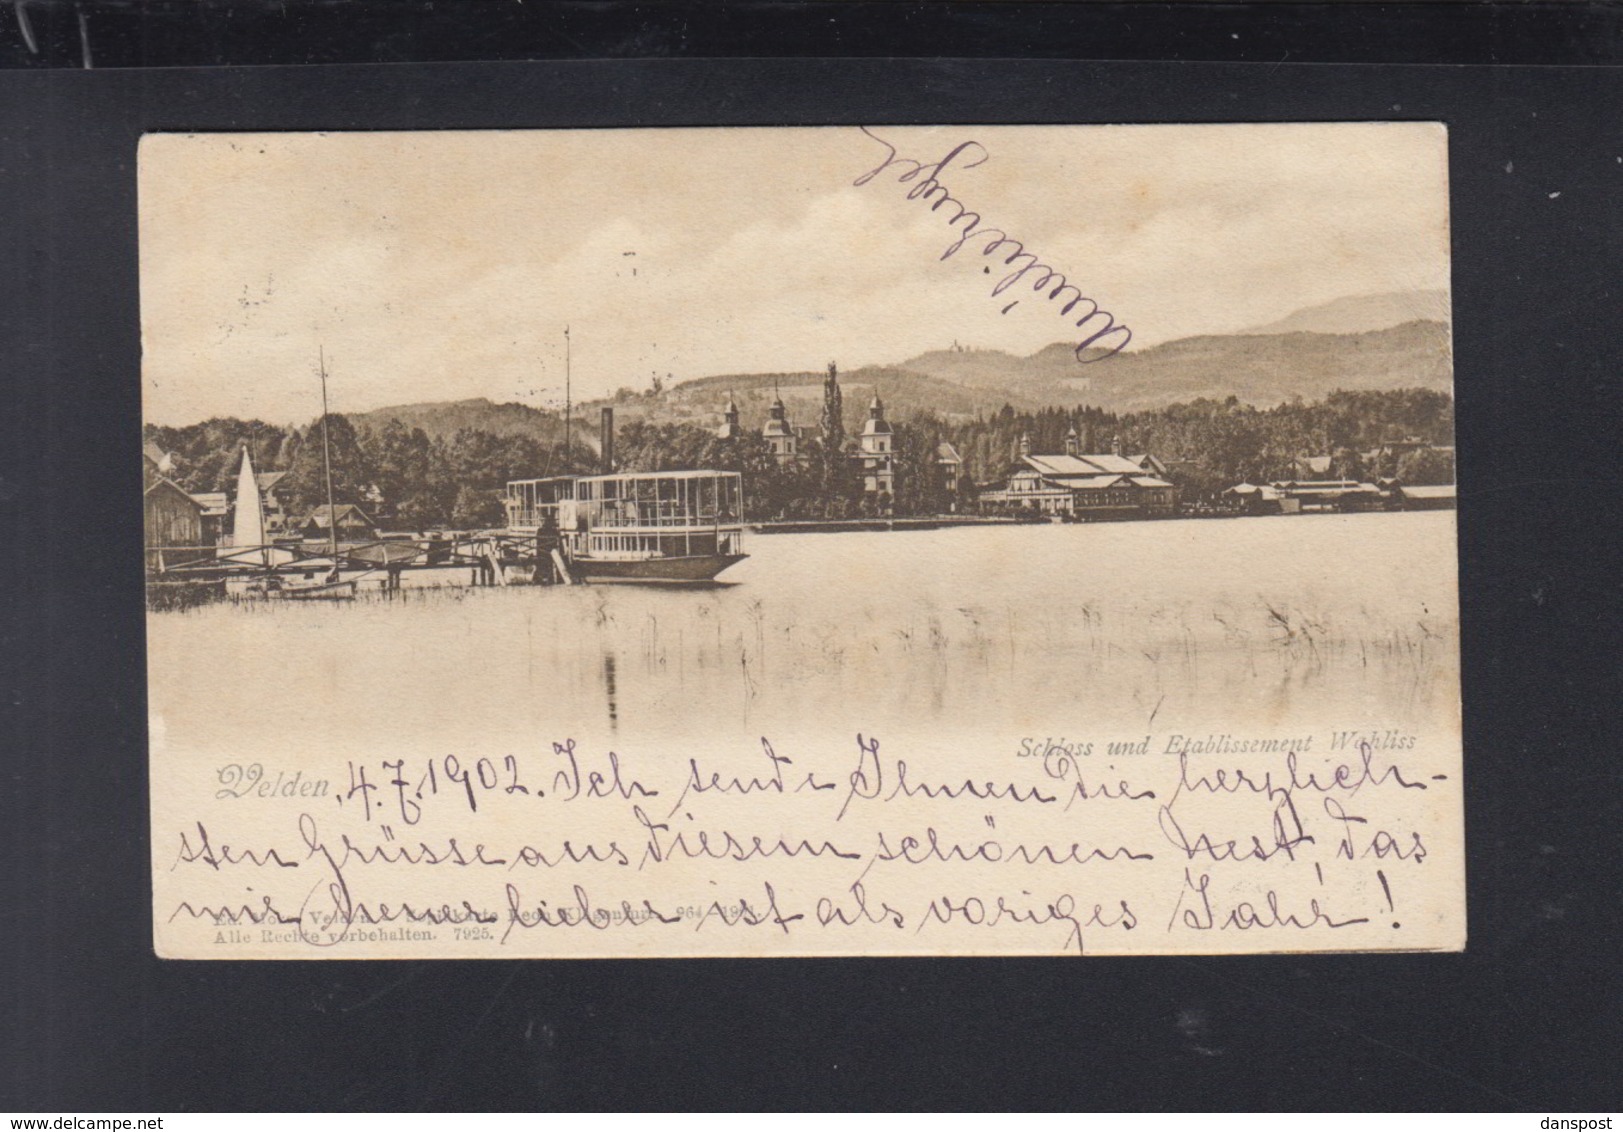 Schloss und Etablissement Wahliss
Velden, 4.7.1902. Ich sende Ihnen die herzlich-
sten Grüsse aus diesem schönen Nest, das
mir heuer lieber ist als voriges Jahr!
Alle Rechte vorbehalten. 7925.
danspost